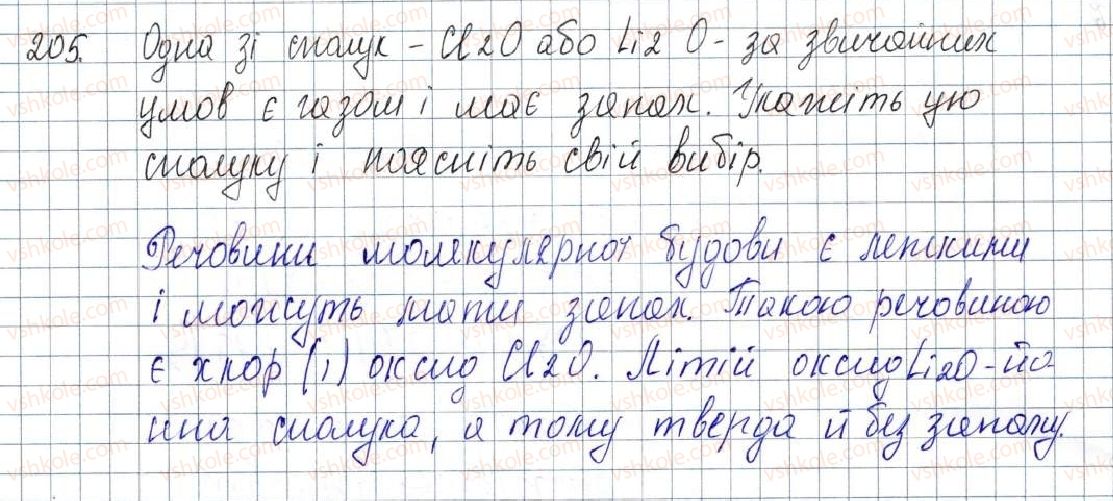 205. Одна зі сполук – Cl2O або Li2O – за звичайних
умов є газом і має запах. Укажіть цю
сполуку і поясніть свій вибір.
Речовини молекулярної будови є леткими
і можуть мати запах. Такою речовиною
є хлор (I) оксид Cl2O. Літій оксид Li2O – йо-
нна сполука, а тому тверда й без запаху.